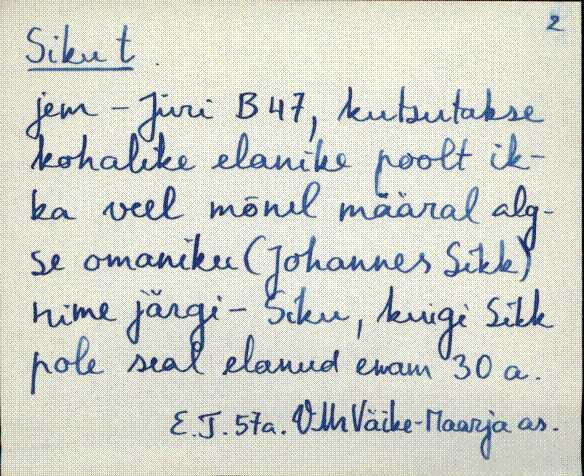 2
Siku t.
jem - Jüri B 47, kutsutakse
kohalike elanike poolt ik-
ka veel mõnel määral alg-
se omaniku (Johannes Sikk)
nime järgi - Siku, kuigi Sikk
pole seal elanud enam 30 a.
E. J. 57a. VMr Väike-Maarja as.